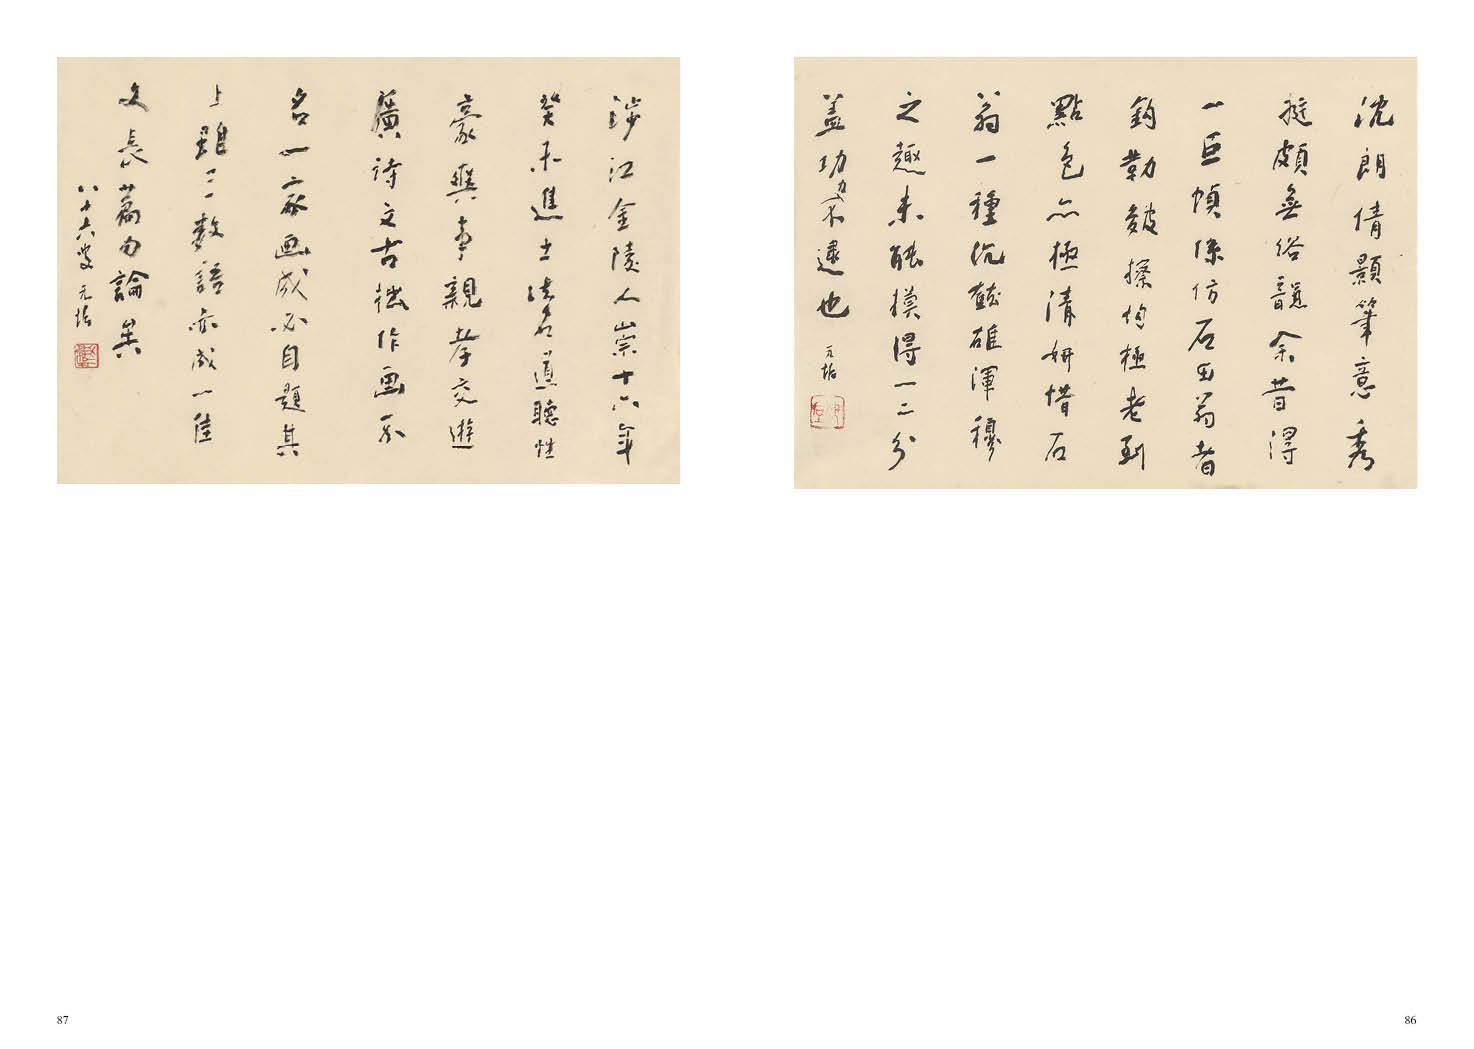 沈朗倩顥筆意秀
挺頗無俗韻余昔得
一巨幀係仿石田翁者
鈎勒皴擦均極老到
點色亦極清妍惜石
翁一種沉雄渾穆
之趣未能摸得一二分
蓋功力不逮也
元

86
涉江金陵人崇十六年
癸未進士法名道聰性
豪興事親孝交遊
廣詩文古拙作画不
名一家画成必自題其
上雖二三數語亦成一佳
文長篇勿論矣
八十六叟元

87